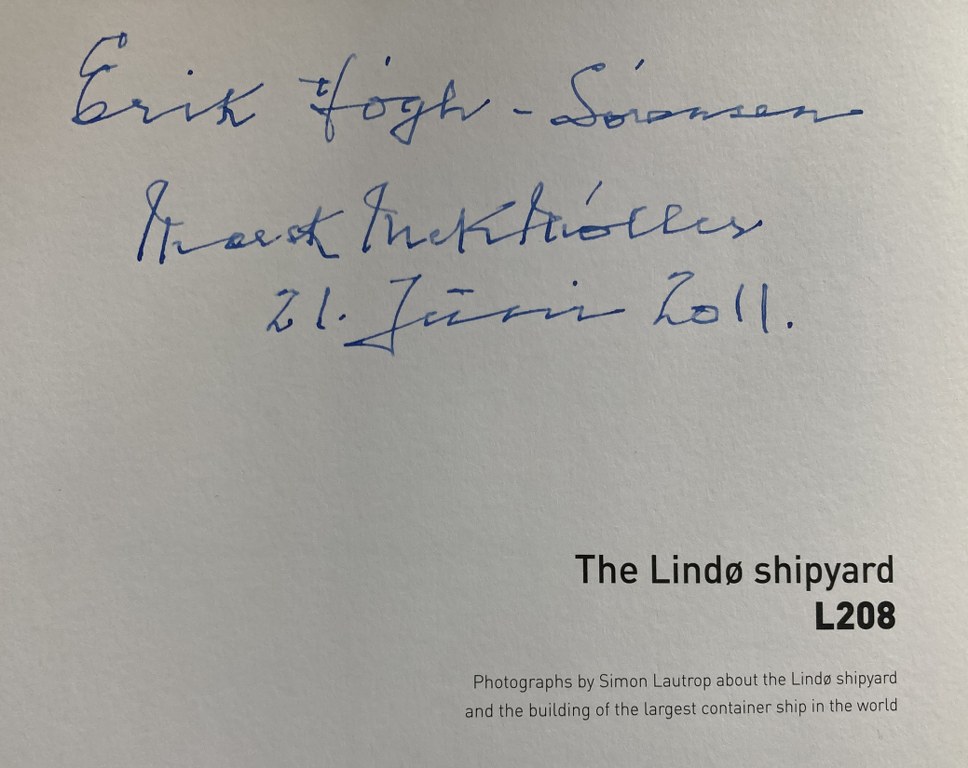 Erik Høgh-Sørensen
Mærsk McK Møller
21. Juni 2011.
The Lindø shipyard
L208
Photographs by Simon Lautrop about the Lindø shipyard
and the building of the largest container ship in the world